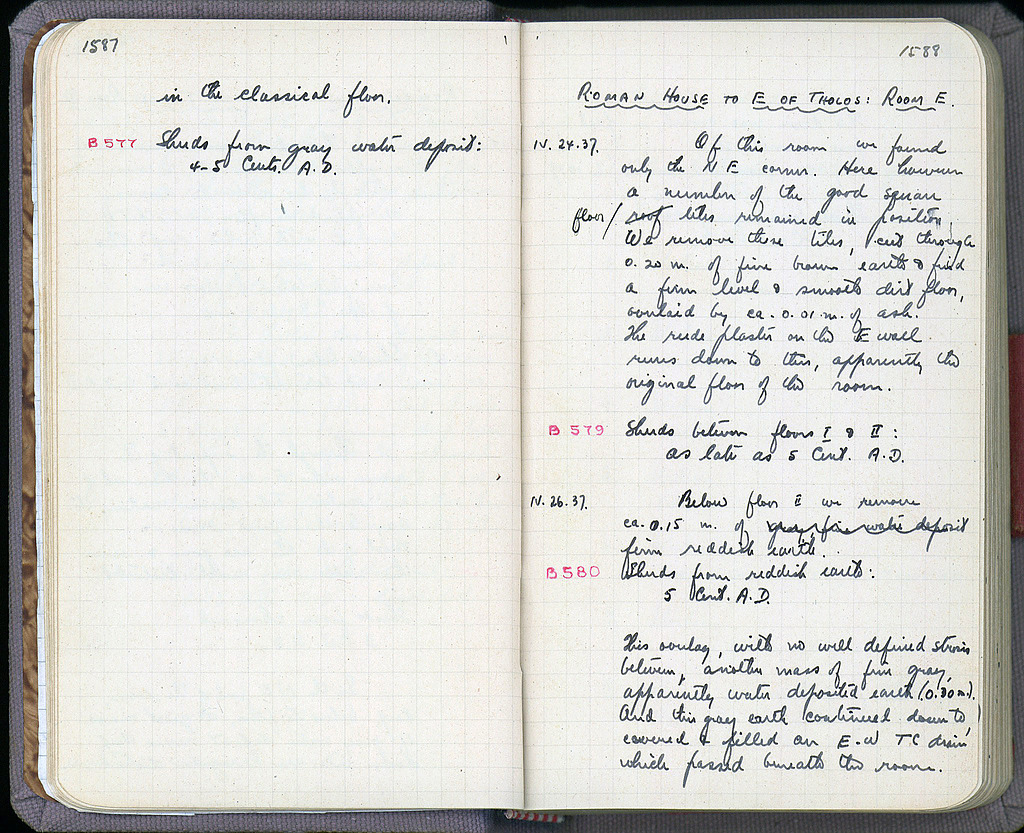 1587
in the classical floor.
B 577 Sherds from gray water deposit:
4-5 Cents. A.D.
1588
ROMAN HOUSE TO E OF THOLOS: ROOM E.
IV. 24.37. Of this room we found
only the N E corner. Here however
a number of the good square
floor/ roof tiles remained in position.
We remove these tiles, cut through
0.20 m. of fine brown earth & find
a firm level & smooth dirt floor,
overlaid by ca. 0.01 m. of ash.
The rude plaster on the E wall
runs down to this, apparently the
original floor of the room.
B 579 Sherds between floors I & II:
as late as 5 Cent. A.D.
IV. 26.37. Below floor II we remove
ca. 0.15 m. of gray, fine water deposit
firm reddish earth.
B 580 Sherds from reddish earth:
5 Cent. A.D.
This overlay, with no well defined strosis
between, another mass of fine gray,
apparently water deposited earth (0.30 m).
And this gray earth continued down to,
covered & filled an E-W TC drain
which passed beneath the room.